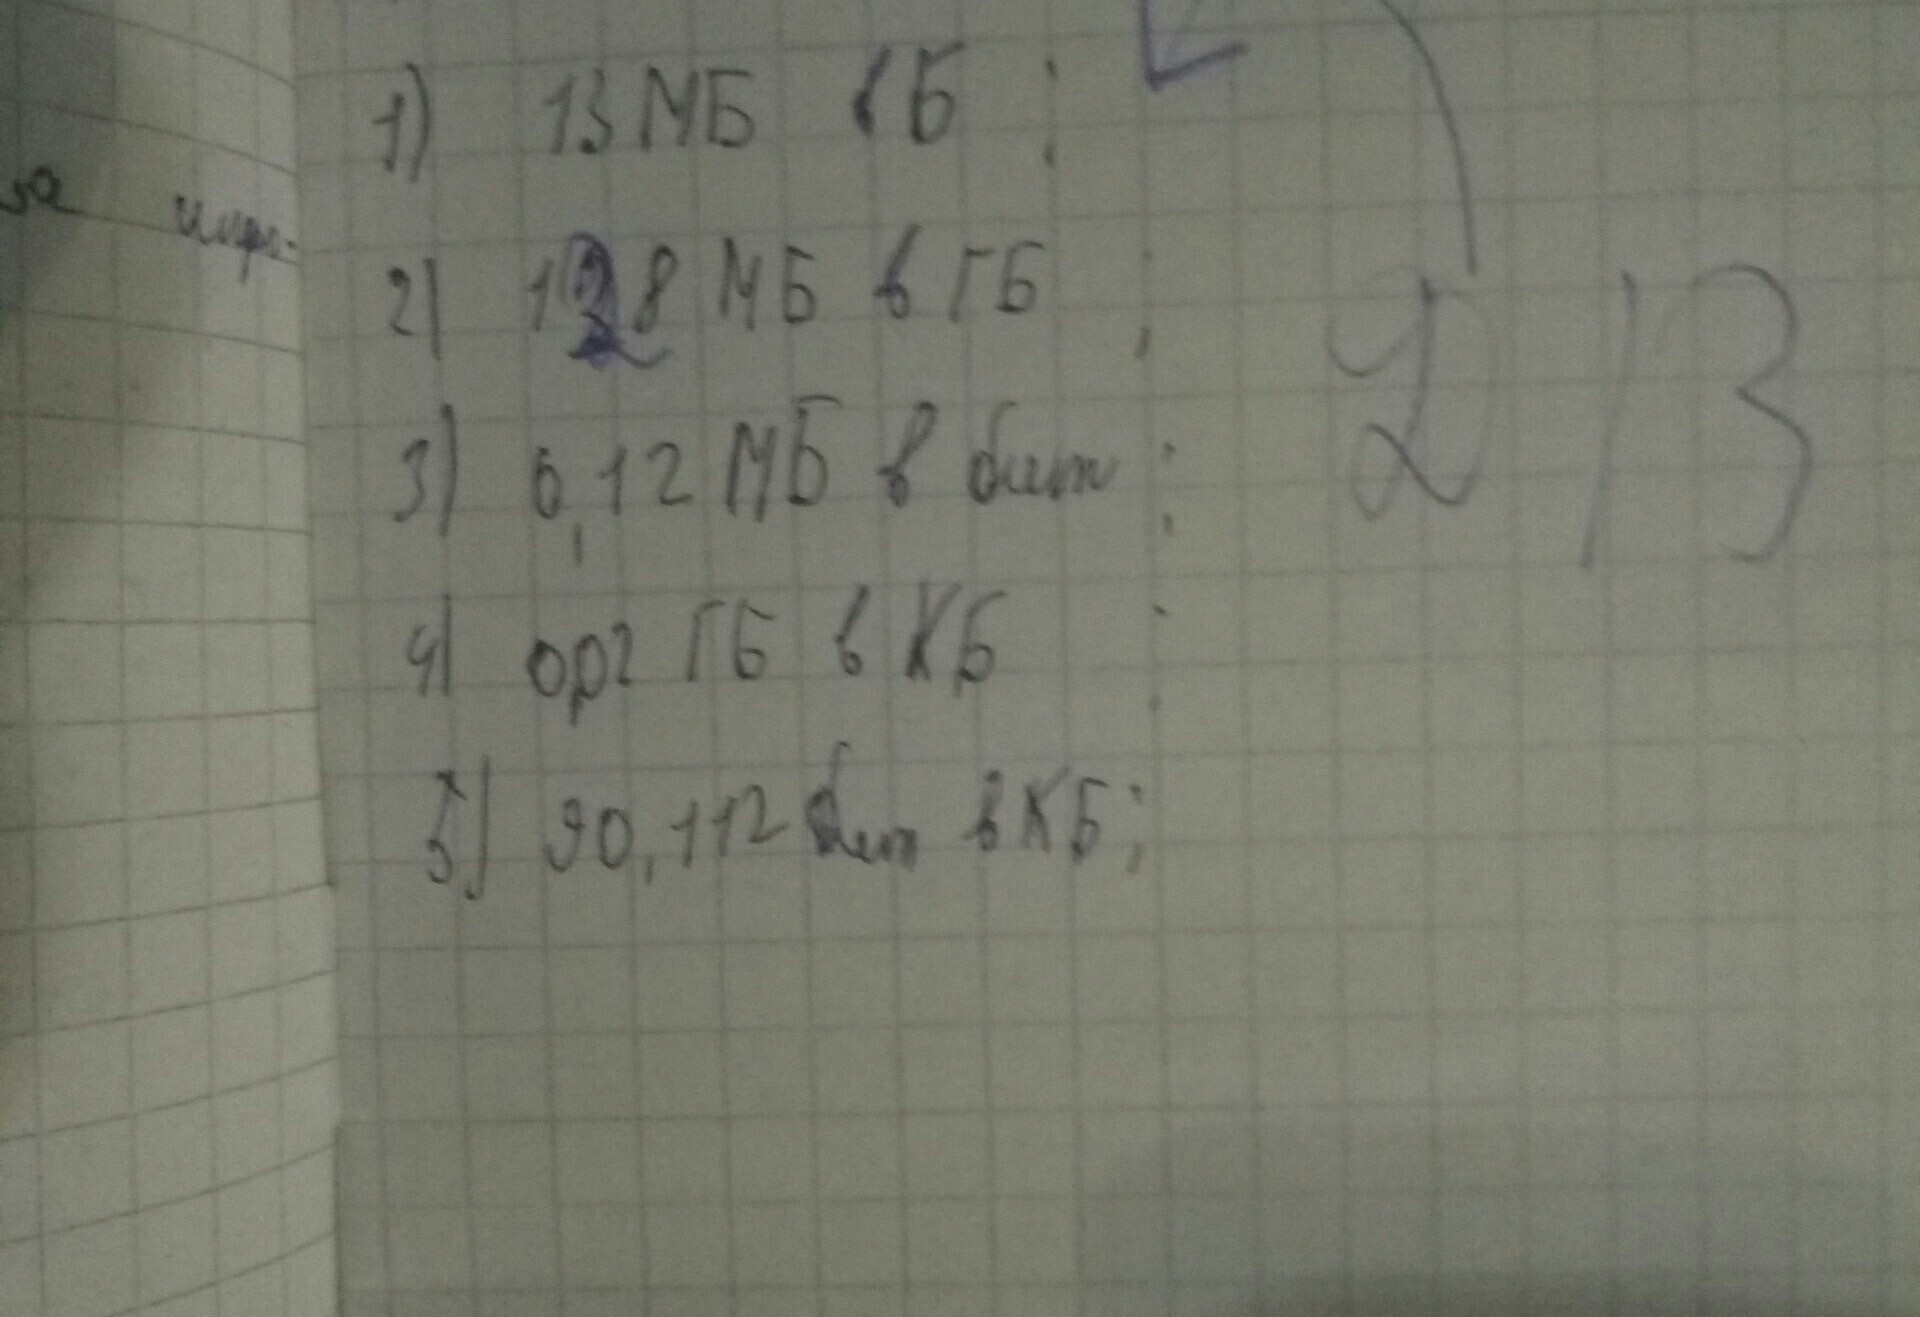 1) 13 МБ в Б ;
2) 128 МБ в ГБ ;
3) 0,12 МБ в бит ;
4) 0,02 ГБ в КБ ;
5) 90,112 бит в КБ;
Д/З